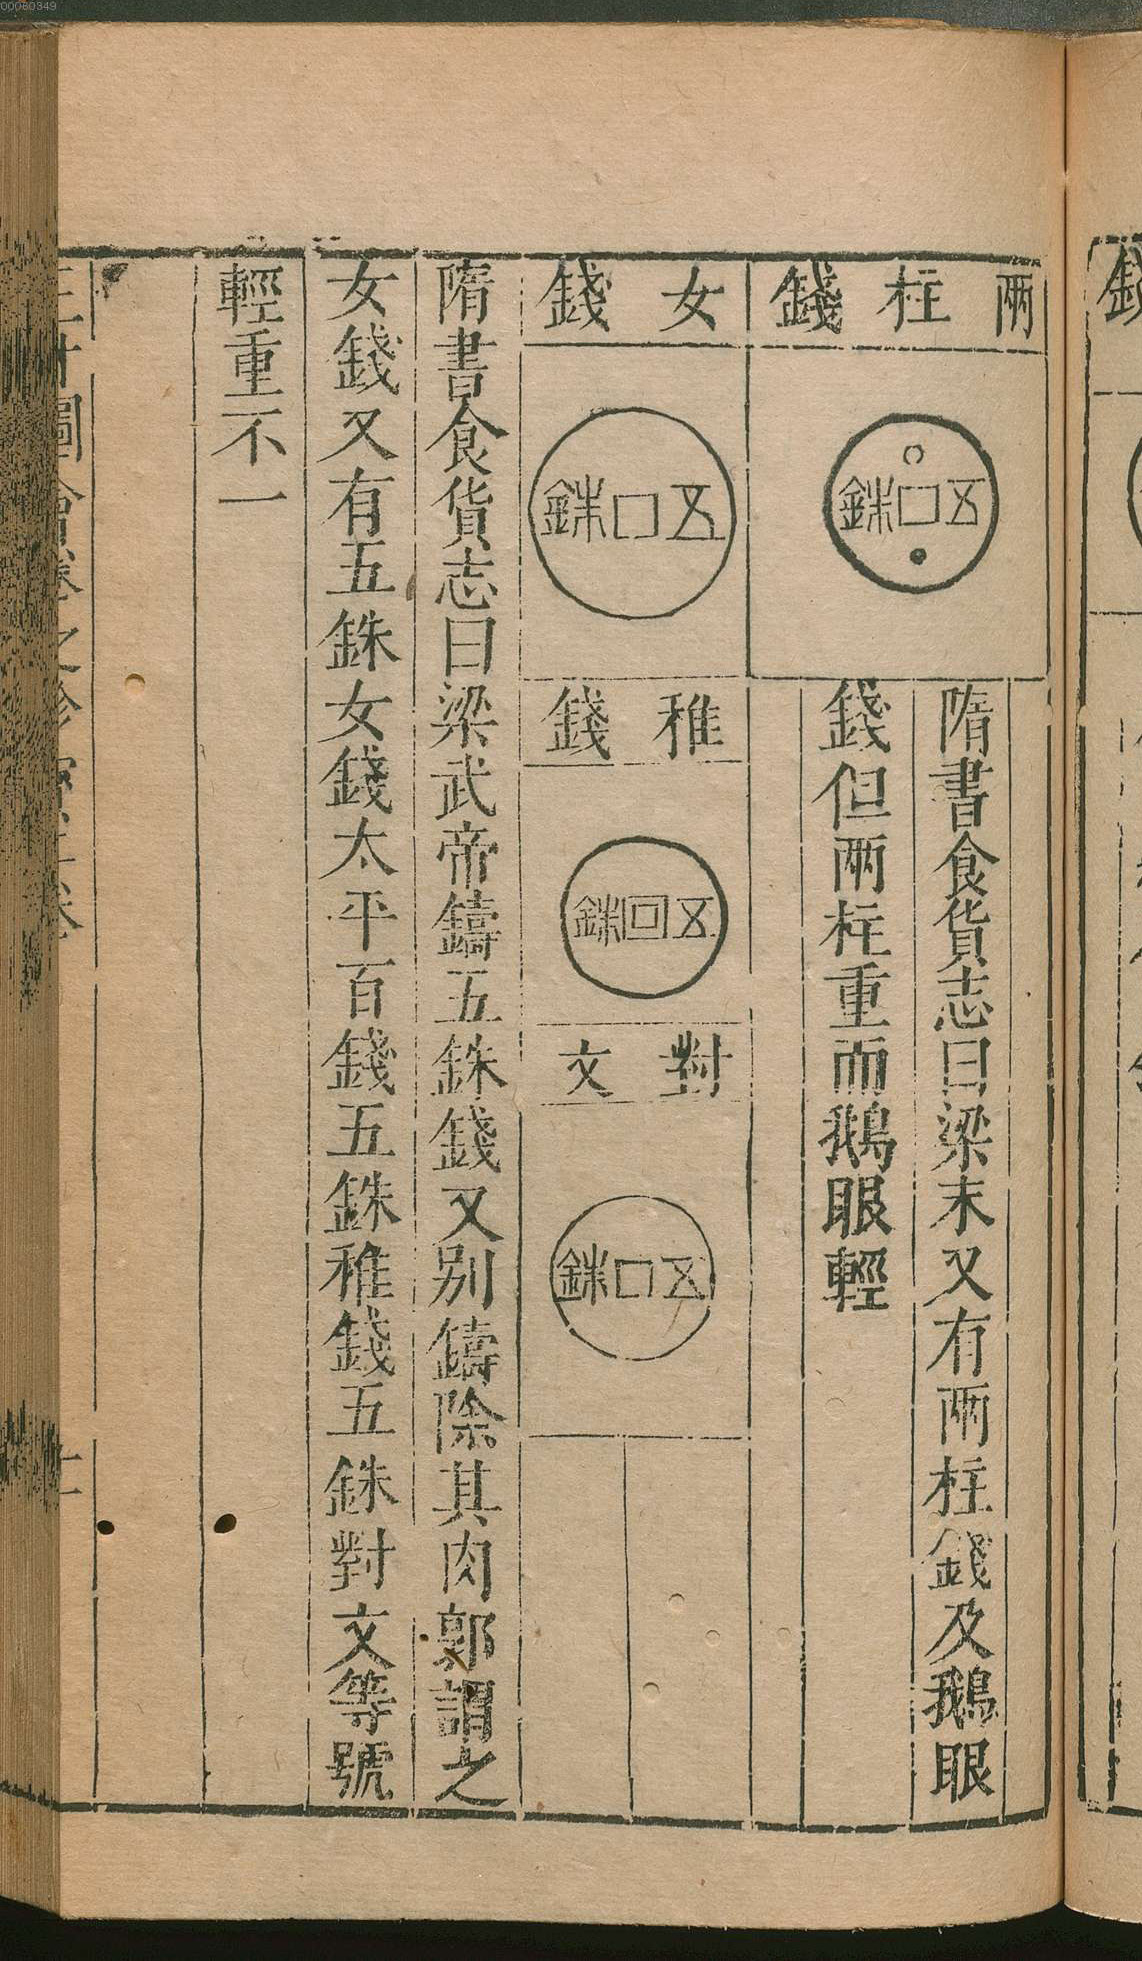 00060349
兩柱錢
五銖
隋書食貨志曰梁末又有兩柱錢及鵝眼
錢但兩柱重而鵝眼輕
女錢
五銖
稚錢
五銖
對文
五銖
隋書食貨志曰梁武帝鑄五銖錢又别鑄除其肉郭謂之
女錢又有五銖女錢太平百錢五銖稚錢五銖對文等號
輕重不一